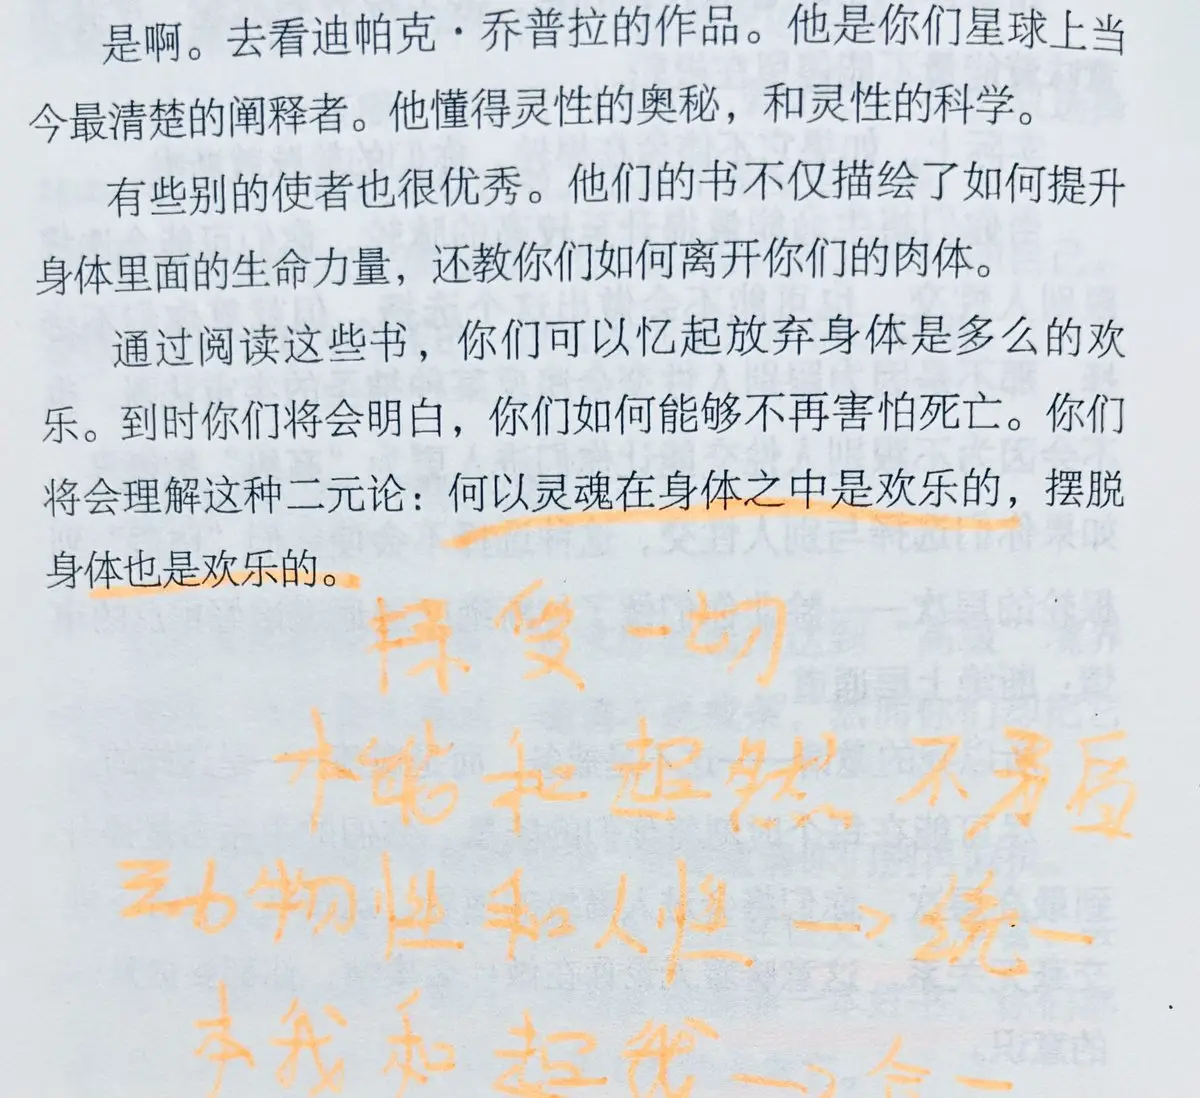 是啊。去看迪帕克·乔普拉的作品。他是你们星球上当
今最清楚的阐释者。他懂得灵性的奥秘，和灵性的科学。
有些别的使者也很优秀。他们的书不仅描绘了如何提升
身体里面的生命力量，还教你们如何离开你们的肉体。
通过阅读这些书，你们可以忆起放弃身体是多么的欢
乐。到时你们将会明白，你们如何能够不再害怕死亡。你们
将会理解这种二元论：何以灵魂在身体之中是欢乐的，摆脱
身体也是欢乐的。
接受一切
本能和超然不矛盾
动物性和人性→统一
本我和超我→合一